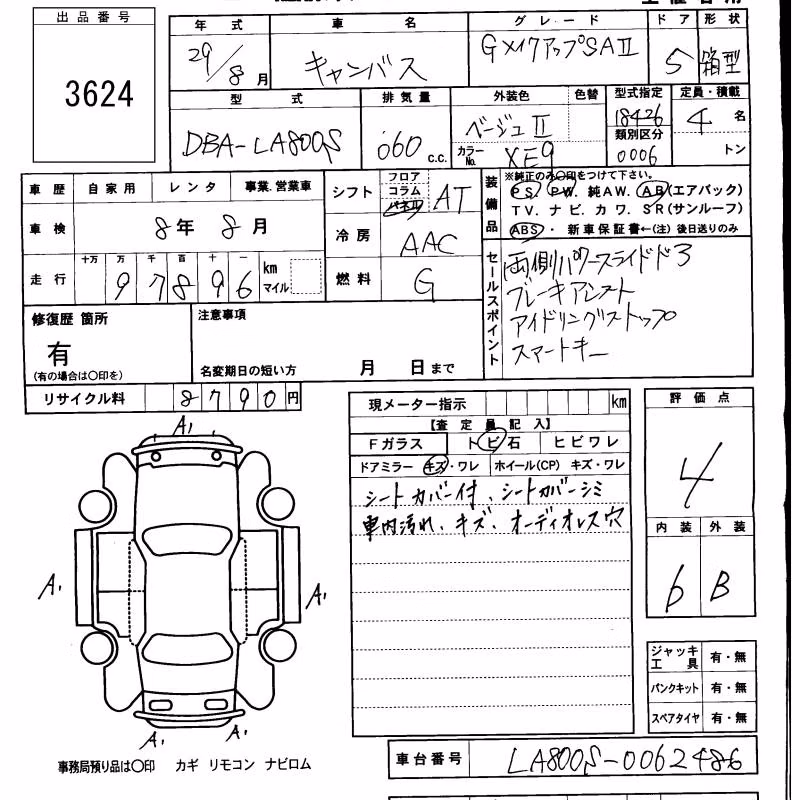 出品番号
3624
年式 車名 グレード ドア 形状
29/8月 キャンバス GメイクアップSAⅡ 5 箱型
型式 排気量 外装色 色替 型式指定 定員・積載
DBA-LA800S 060 c.c. ベージュⅡ 18426 4名
カラーNo. XE9 類別区分 0006 トン
車歴 自家用 レンタ 事業.営業車
車検 8年 8月
走行 十万 万 千 百 十 一
9 7 8 9 6 km マイル
シフト フロア コラム パネル AT
冷房 AAC
燃料 G
装備品
※純正のみ〇印をつけて下さい。
PS. PW. 純AW. AB(エアバック)
TV. ナビ. カワ. SR(サンルーフ)
ABS・ 新車保証書←(注) 後日送りのみ
セールスポイント
両側パワースライドドア
ブレーキアシスト
アイドリングストップ
スマートキー
修復歴 箇所
有
(有の場合は〇印を)
注意事項
名変期日の短い方 月 日まで
リサイクル料 8790円
現メーター指示 km
【査定員記入】
Fガラス トビ石 ヒビワレ
ドアミラー キズ・ワレ ホイール(CP) キズ・ワレ
シートカバー付、シートカバーシミ
車内汚れ、キズ、オーディオレス穴
評価点
4
内装 外装
6 B
ジャッキ工具 有・無
パンクキット 有・無
スペアタイヤ 有・無
A1
A1 A1
A1 A1
事務局預り品は〇印 カギ リモコン ナビロム
車台番号 LA800S-0062486